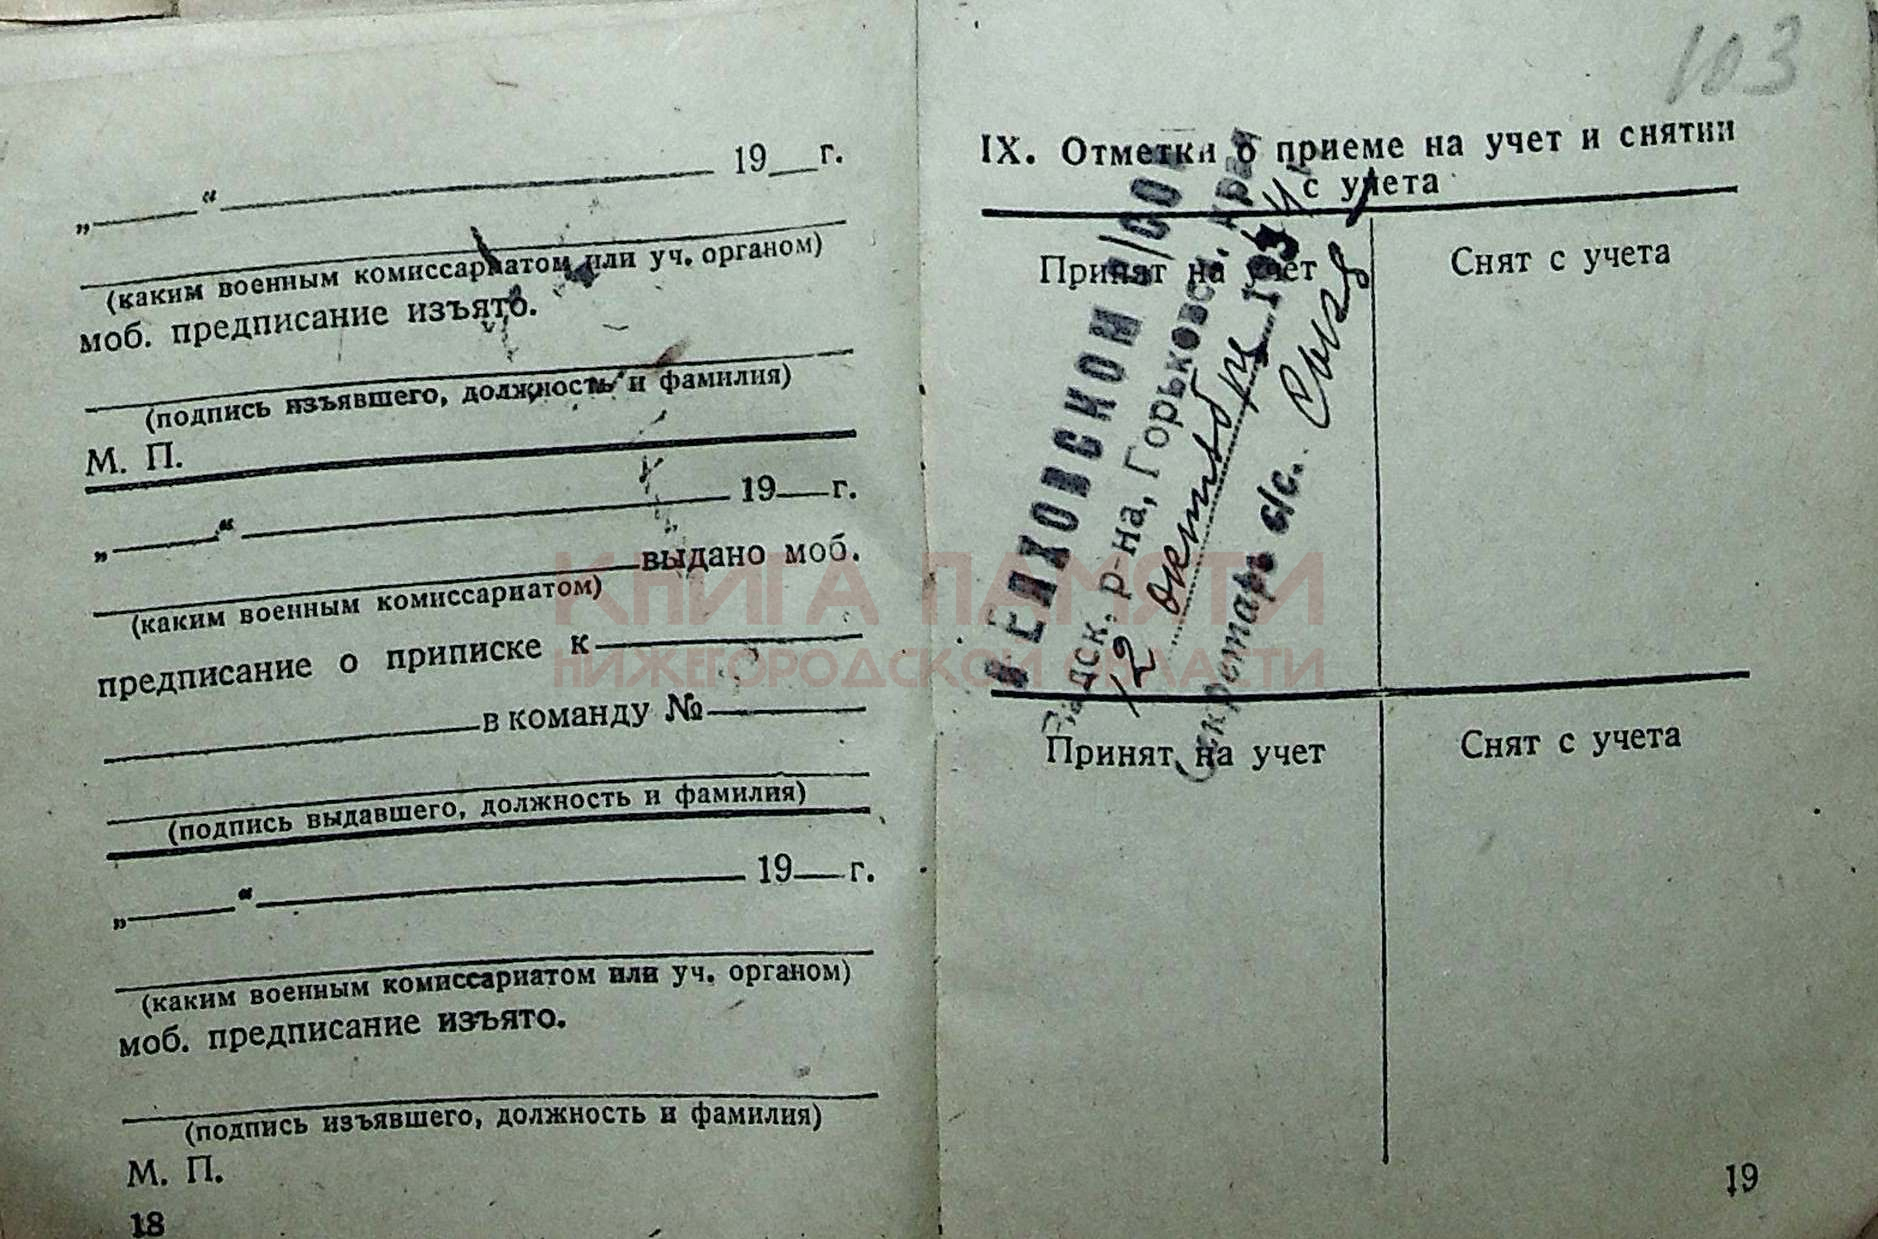 „ “ 19 г.
(каким военным комиссариатом или уч. органом)
моб. предписание изъято.
(подпись изъявшего, должность и фамилия)
М. П.
„ “ 19 г.
выдано моб.
(каким военным комиссариатом)
предписание о приписке к
в команду №
(подпись выдавшего, должность и фамилия)
„ “ 19 г.
(каким военным комиссариатом или уч. органом)
моб. предписание изъято.
(подпись изъявшего, должность и фамилия)
М. П.
18
103
IX. Отметки о приеме на учет и снятии
с учета
Принят на учет
Снят с учета
р-на, Горьковск. края
12 октября 193
Секретарь с/с.
Принят на учет
Снят с учета
19
КНИГА ПАМЯТИ
НИЖЕГОРОДСКОЙ ОБЛАСТИ